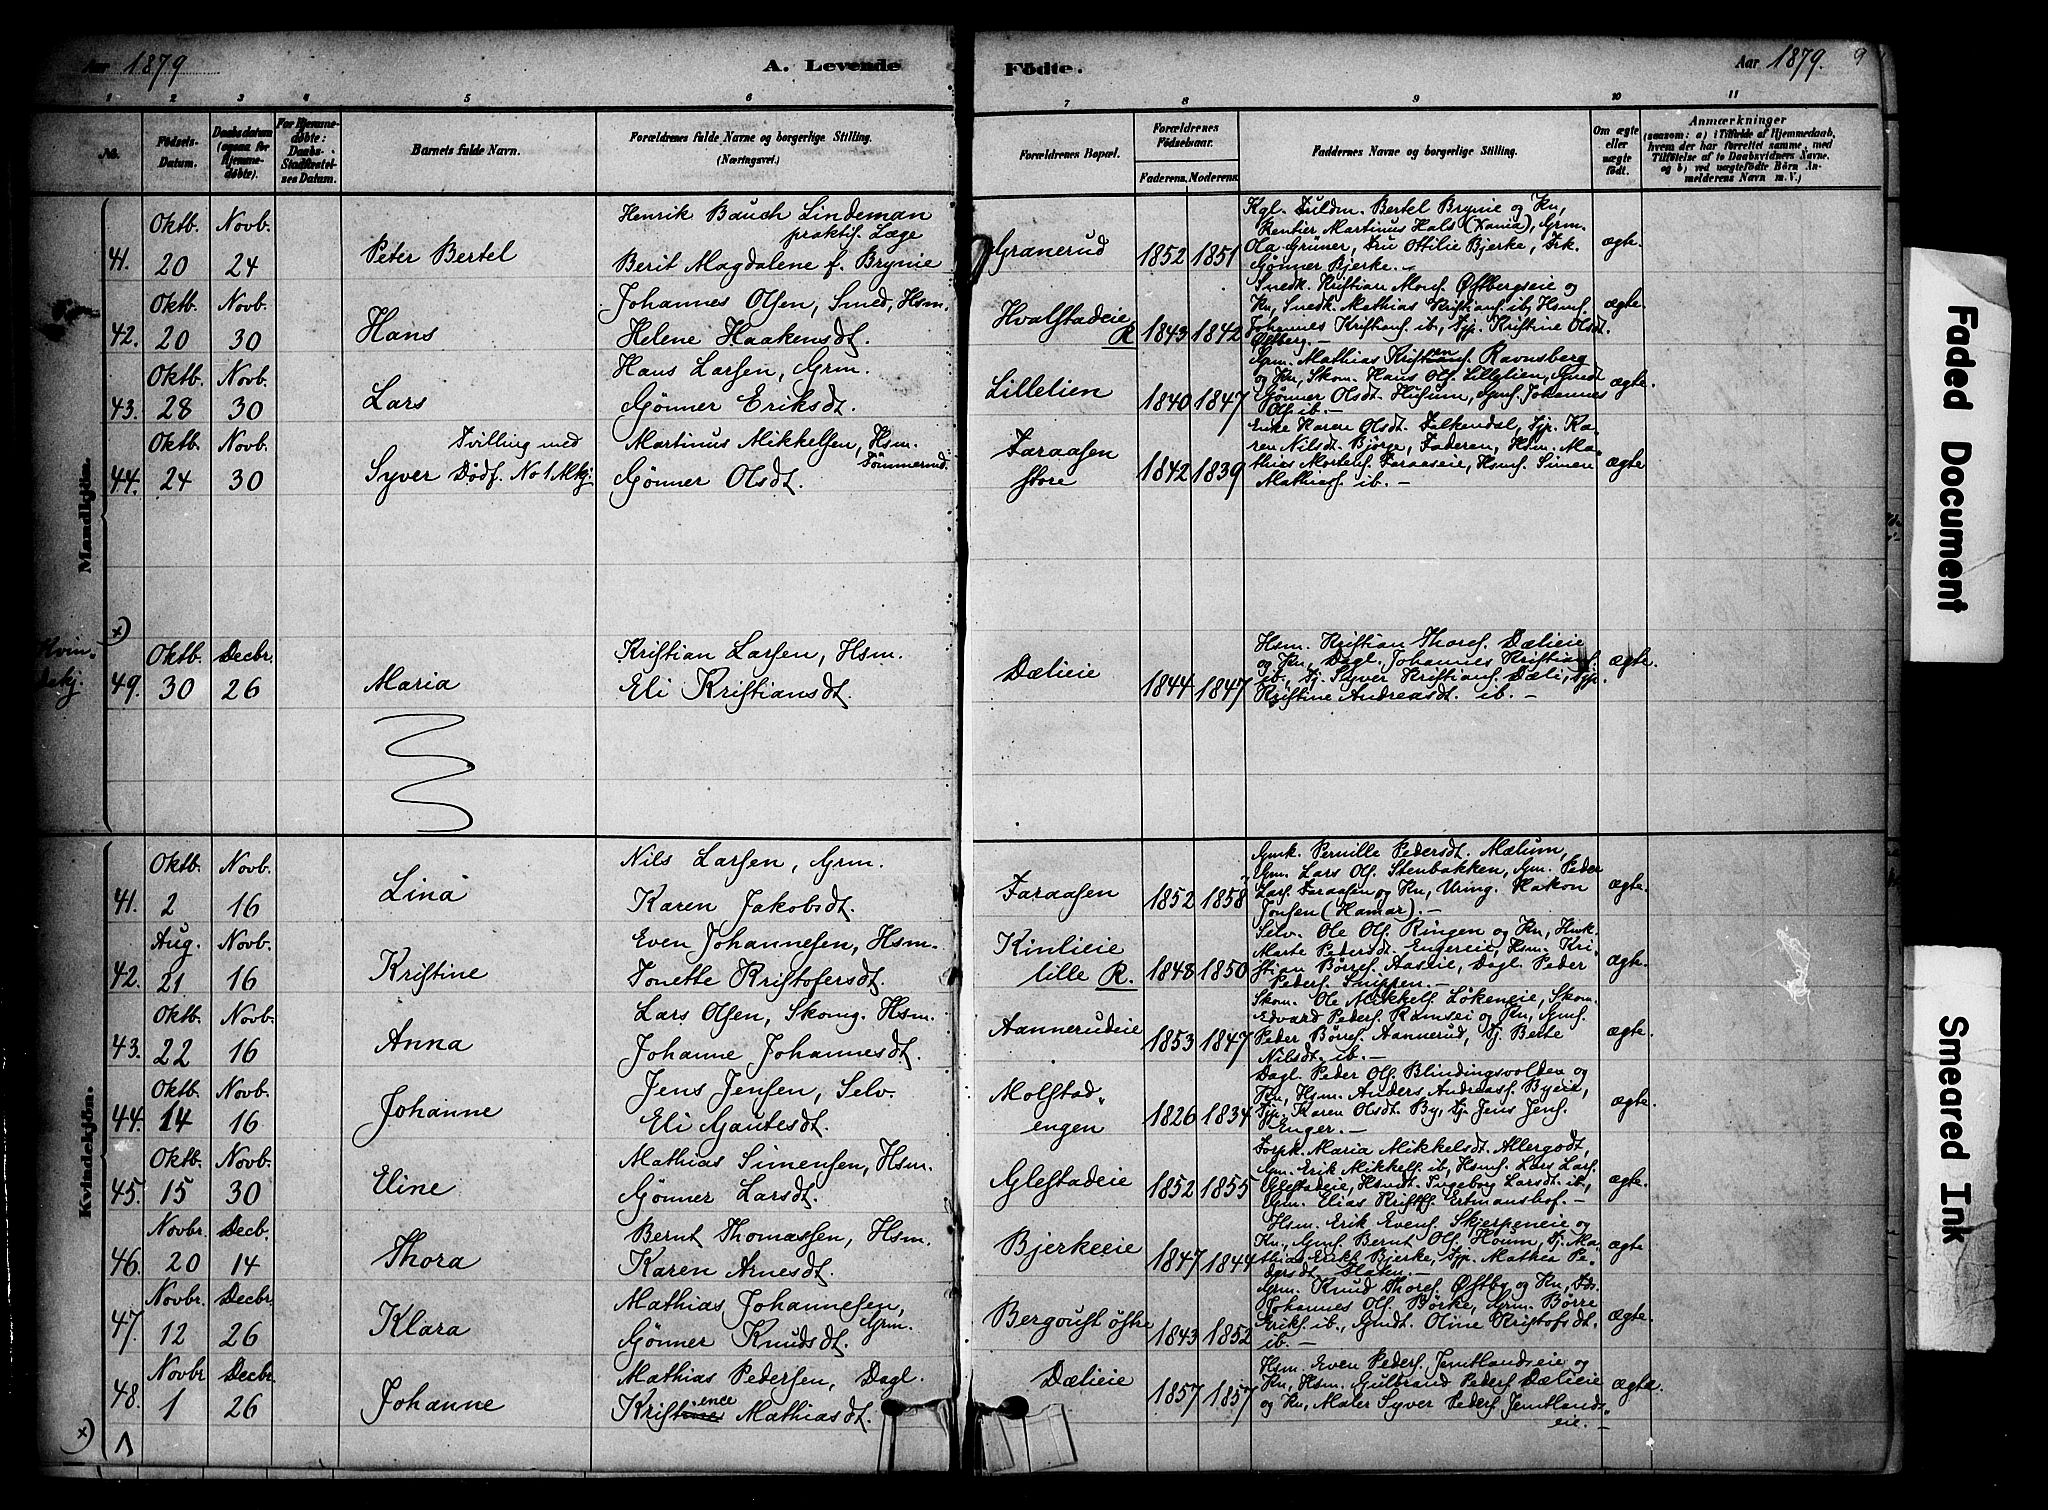 Aar 1879
A. Levende
Födte.
Aar 1879. 9
1 2 3 4 5 6 7 8 9 10 11
No.
Födsels-Datum.
Daabsdatum (ogsaa for Hjemme-döbte).
For Hjemme-döbte: Daabs-Stadfæstel-ses Datum.
Barnets fulde Navn.
Forældrenes fulde Navne og borgerlige Stilling. (Næringsvei.)
Forældrenes Bopæl.
Forældrenes Födselsaar.
Faderens. Moderens.
Faddernes Navne og borgerlige Stilling.
Om ægte eller uægte födt.
Anmærkninger
(saasom: a) i Tilfælde af Hjemmedaab, hvem der har forrettet samme, med Tilföielse af to Daabsvidners Navne, og b) ved uægtefödte Börn An-melderens Navn m. V.)
Mandkjön.
41. Oktb. 20 Novb. 24
Peter Bertel
Henrik Bauch Lindeman
praktis. Læge
Berit Magdalene f. Brynie
Granerud
1852 1851
Kgl. Fuldm. Bertel Brynie og Kn,
Rentier Martinus Hals (Xania), Grm.
Ola Grüner, Fru Ottilie Bjerke, Frk.
Gönner Bjerke. -
ægte.
42. Oktb. 20 Novb. 30
Hans
Johannes Olsen, Smed, Hsm.
Helene Haakensdt.
Hvalstadeie R
1843 1842
Snedk. Kristian Mons. Östbergseie og
Kn, Snedk. Mathias Kristians. ib, Hsms.
Johannes Kristians. ib, Tjp. Kristine Olsdt.
Östberg. -
ægte.
43. Oktb. 28 Novb. 30
Lars
Hans Larsen, Grm.
Gönner Eriksdt.
Lillelien
1840 1847
Grm. Mathias Kristens. Ravnsberg
og Kn, Skom. Hans Ols. Lillelien, Gmdt
Gönner Olsdt. Husum, Gms. Johannes
Ols. ib. -
ægte.
44. Oktb. 24 Novb. 30
Syver
Tvilling med
Dödf. No 1 Mkj.
Martinus Mikkelsen, Hsm.
Tömmermd.
Gönner Olsdt.
Faraasen store
1842 1839
Enke Karen Olsdt. Falkendal, Tjp. Ka-
ren Nilsdt. Björge, Faderen, Hsm. Ma-
thias Mortens. Faraaseie, Hsms. Simen
Mathias. ib. -
ægte
x)
Kvin-
dekj.
49. Oktb. 30 Decbr. 26
Maria
Kristian Larsen, Hsm.
Eli Kristiansdt.
Dælieie
1844 1847
Hsm. Kristian Thores. Dælieie
og Kn, Dagl. Johannes Kristians.
ib, Tj. Syver Kristians. Dæli, Tjp.
Kristine Andreasdt. ib. -
ægte.
Kvindekjön.
41. Oktb. 2 Novb. 16
Lina
Nils Larsen, Grm.
Karen Jakobsdt.
Faraasen
1852 1858
Gmk. Pernille Pedersdt. Mælum,
Grm. Lars Ols. Stenbakken, Grm. Peder
Lars. Faraasen og Kn, Uring. Hakon
Jonsen (Hamar). -
ægte.
42. Aug. 21 Novb. 16
Kristine
Even Johannesen, Hsm.
Tonette Kristofersdt.
Kinlieie lille R.
1848 1850
Selv. Ole Ols. Ringen og Kn, Husk.
Marte Pedersdt. Engereie, Hsm. Kri-
stian Börres. Aaseie, Dagl. Peder
Peders. Snippen. -
ægte.
43. Oktb. 22 Novb. 16
Anna
Lars Olsen, Skomg. Hsm.
Johanne Johannesdt.
Aannerudeie
1853 1847
Skom. Ole Mikkels. Lökeneie, Skom.
Edvard Peders. Ramsei og Kn, Gms.
Peder Börres. Aannerud, Tj. Berte
Nilsdt. ib. -
ægte.
44. Oktb. 14 Novb. 16
Johanne
Jens Jensen, Selv.
Eli Gautesdt.
Molstad„ engen
1826 1834
Dagl. Peder Ols. Blindingsvolden og
Kn, Hsm. Anders Andreas. Byeie,
Tjp. Karen Olsdt. By, Tj. Jens Jens.
Enger. -
ægte.
45. Oktb. 15 Novb. 30
Eline
Mathias Simensen, Hsm.
Gönner Larsdt.
Glestadeie
1852 1855
Forpk. Maria Mikkelsdt. Allergodt,
Grm. Erik Mikkels. ib, Hsms. Lars Lars.
Glestadeie, Hsmdt. Ingeborg Larsdt. ib,
Grm. Elias Kristofs. Ertmanshof. -
ægte.
46. Novbr. 20 Decb. 14
Thora
Bernt Thomassen, Hsm.
Karen Arnesdt.
Bjerkeeie
1847 1844
Hsm. Erik Evens. Skjerpeneie og
Kn, Gms. Bernt Ols. Houm, Tj. Ma-
thias Eriks. Bjerke, Tjp. Mathia Pe-
dersdt. Flaten. -
ægte
47. Novbr. 12 Decbr. 26
Klara
Mathias Johannesen, Grm.
Gönner Knudsdt.
Bergoust östre
1843 1852
Grm. Knud Thores. Östby og Kn, Fds.
Johannes Ols. Börke, Grm. Börre
Eriks. ib., Gmdt. Oline Kristofsdt.
ib. -
ægte.
48. Novbr. 1 Decbr. 26
Johanne
Mathias Pedersen, Dagl.
Kristence Mathiasdt.
Dælieie
1857 1857
Hsm. Even Peders. Jemtlandseie og
Kn, Hsm. Gulbrand Peders. Dælieie
og Kn, Maler Syver Peders. Jemtlands-
eie. -
ægte.
x)
Faded Document
Smeared Ink